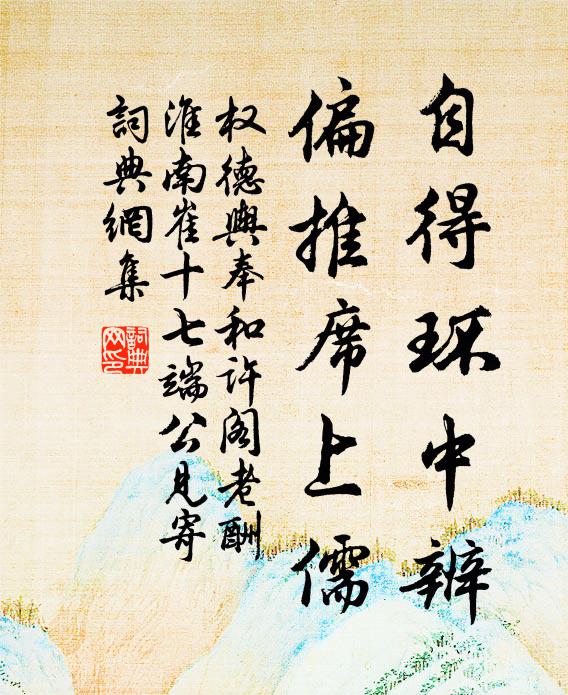 自得环中辨
偏推席上儒
权德舆奉和许阁老酬
淮南崔十七端公见寄
詞典網集
詞典网印